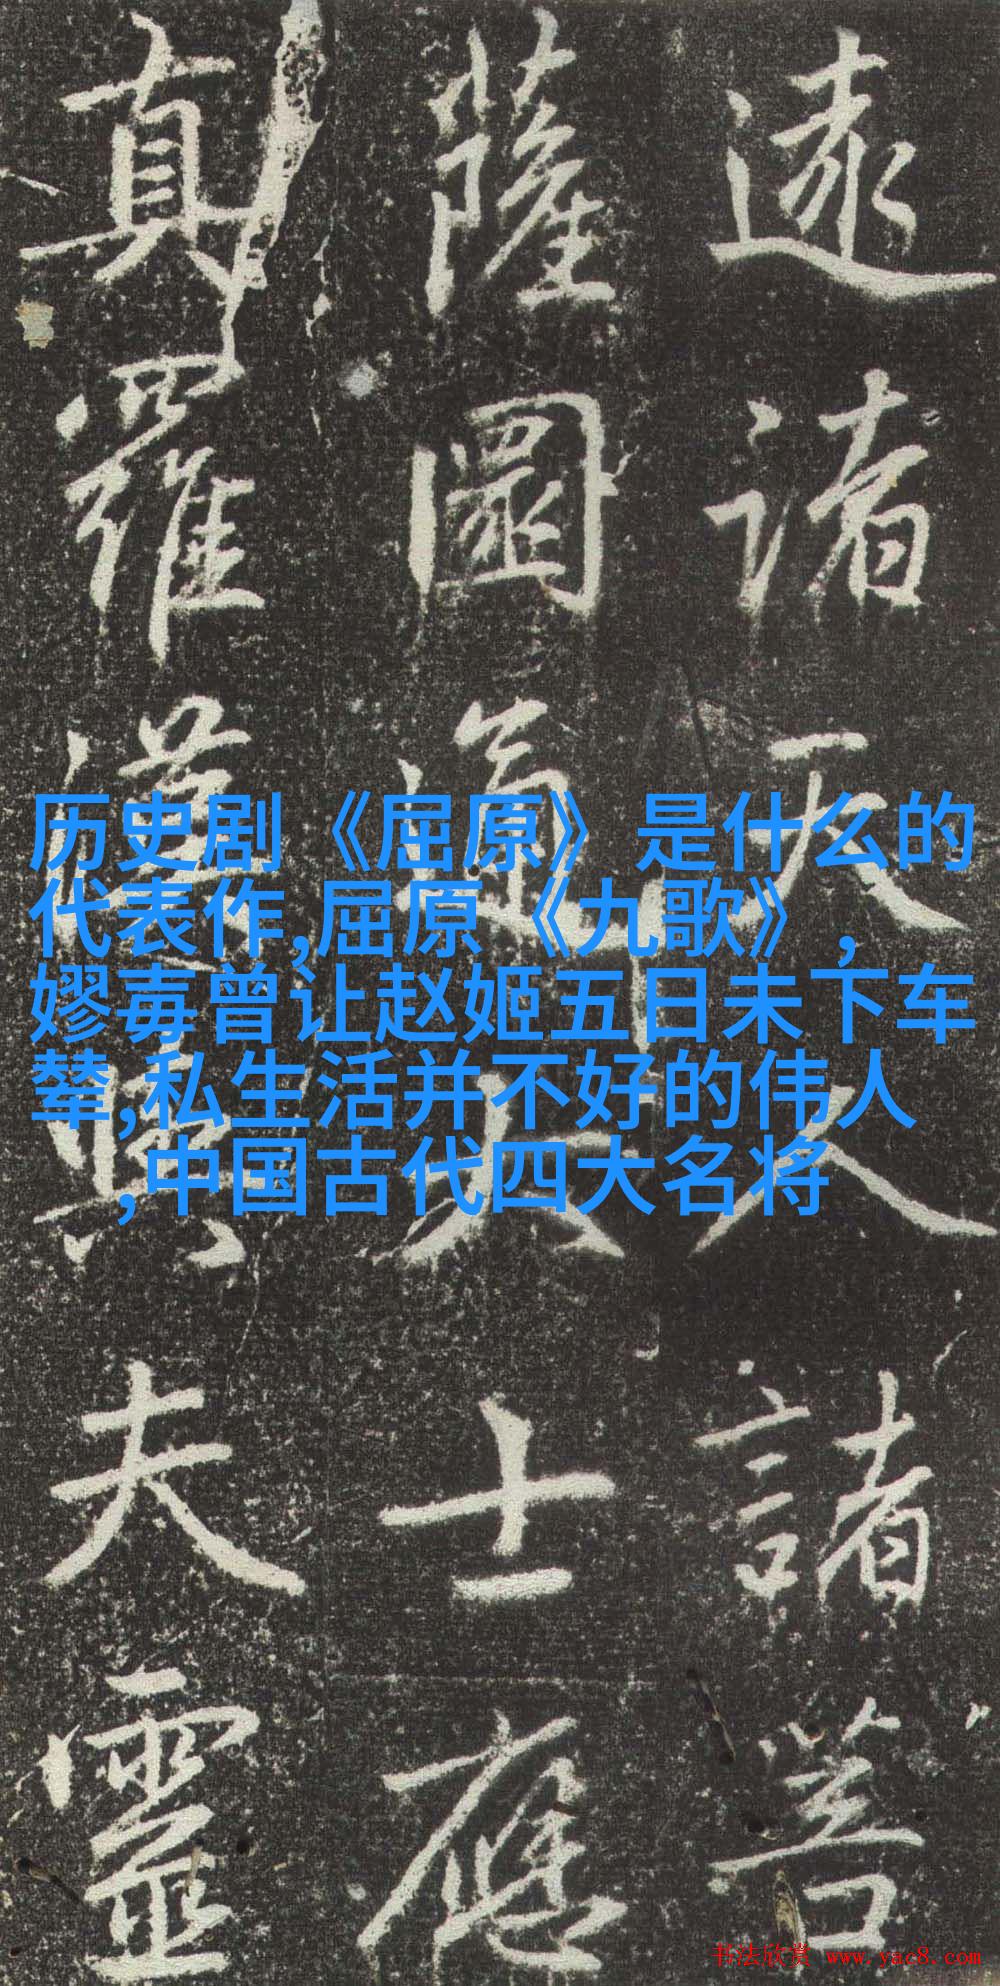 遠諸天人諸菩
薩圓通大士應
真羅漢與夫靈
历史剧《屈原》是什么的
代表作,屈原《九歌》,
嫪毐曾让赵姬五日未下车
辇,私生活并不好的伟人
,中国古代四大名将
书法欣赏 www.yac8.com